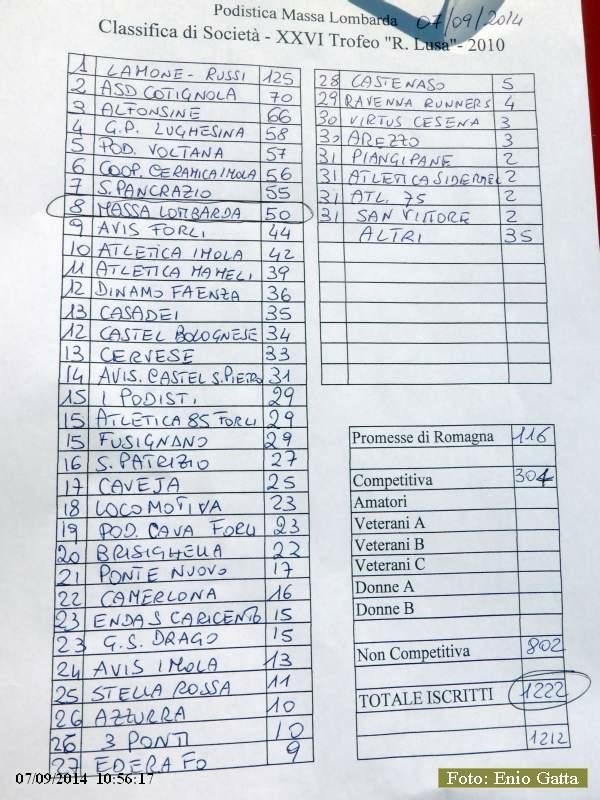 Podistica Massa Lombarda 07/09/2014
Classifica di Società - XXVI Trofeo "R. Lusa"- 2010
1 LAMONE-RUSSI 125
2 ASD COTIGNOLA 70
3 ALFONSINE 66
4 G.P. LUGHESINA 58
5 POD. VOLTANA 57
6 COOP. CERAMICA IMOLA 56
7 S. PANCRAZIO 55
8 MASSA LOMBARDA 50
9 AVIS FORLI 44
10 ATLETICA IMOLA 42
11 ATLETICA MAMELI 39
12 DINAMO FAENZA 36
13 CASADEI 35
12 CASTEL BOLOGNESE 34
13 CERVESE 33
14 AVIS. CASTEL S. PIETRO 31
15 I PODISTI 29
15 ATLETICA 85 FORLI 29
15 FUSIGNANO 29
16 S. PATRIZIO 27
17 CAVEJA 25
18 LOCOMOTIVA 23
19 POD. CAVA FORLI 23
20 BRISIGHELLA 22
21 PONTE NUOVO 17
22 CAMERLONA 16
23 ENDAS CARICENTO 15
23 G.S. DRAGO 15
24 AVIS IMOLA 13
25 STELLA ROSSA 11
26 AZZURRA 10
26 3 PONTI 10
27 EDERA FO 9
28 CASTENASO 5
29 RAVENNA RUNNERS 4
30 VIRTUS CESENA 3
30 AREZZO 3
31 PIANGIPANE 2
31 ATLETICA SIDERMEL 2
31 ATL. 75 2
31 SAN VITTORE 2
ALTRI 35
Promesse di Romagna 116
Competitiva 304
Amatori
Veterani A
Veterani B
Veterani C
Donne A
Donne B
Non Competitiva 802
TOTALE ISCRITTI 1222
1212
07/09/2014 10:56:17
Foto: Enio Gatta